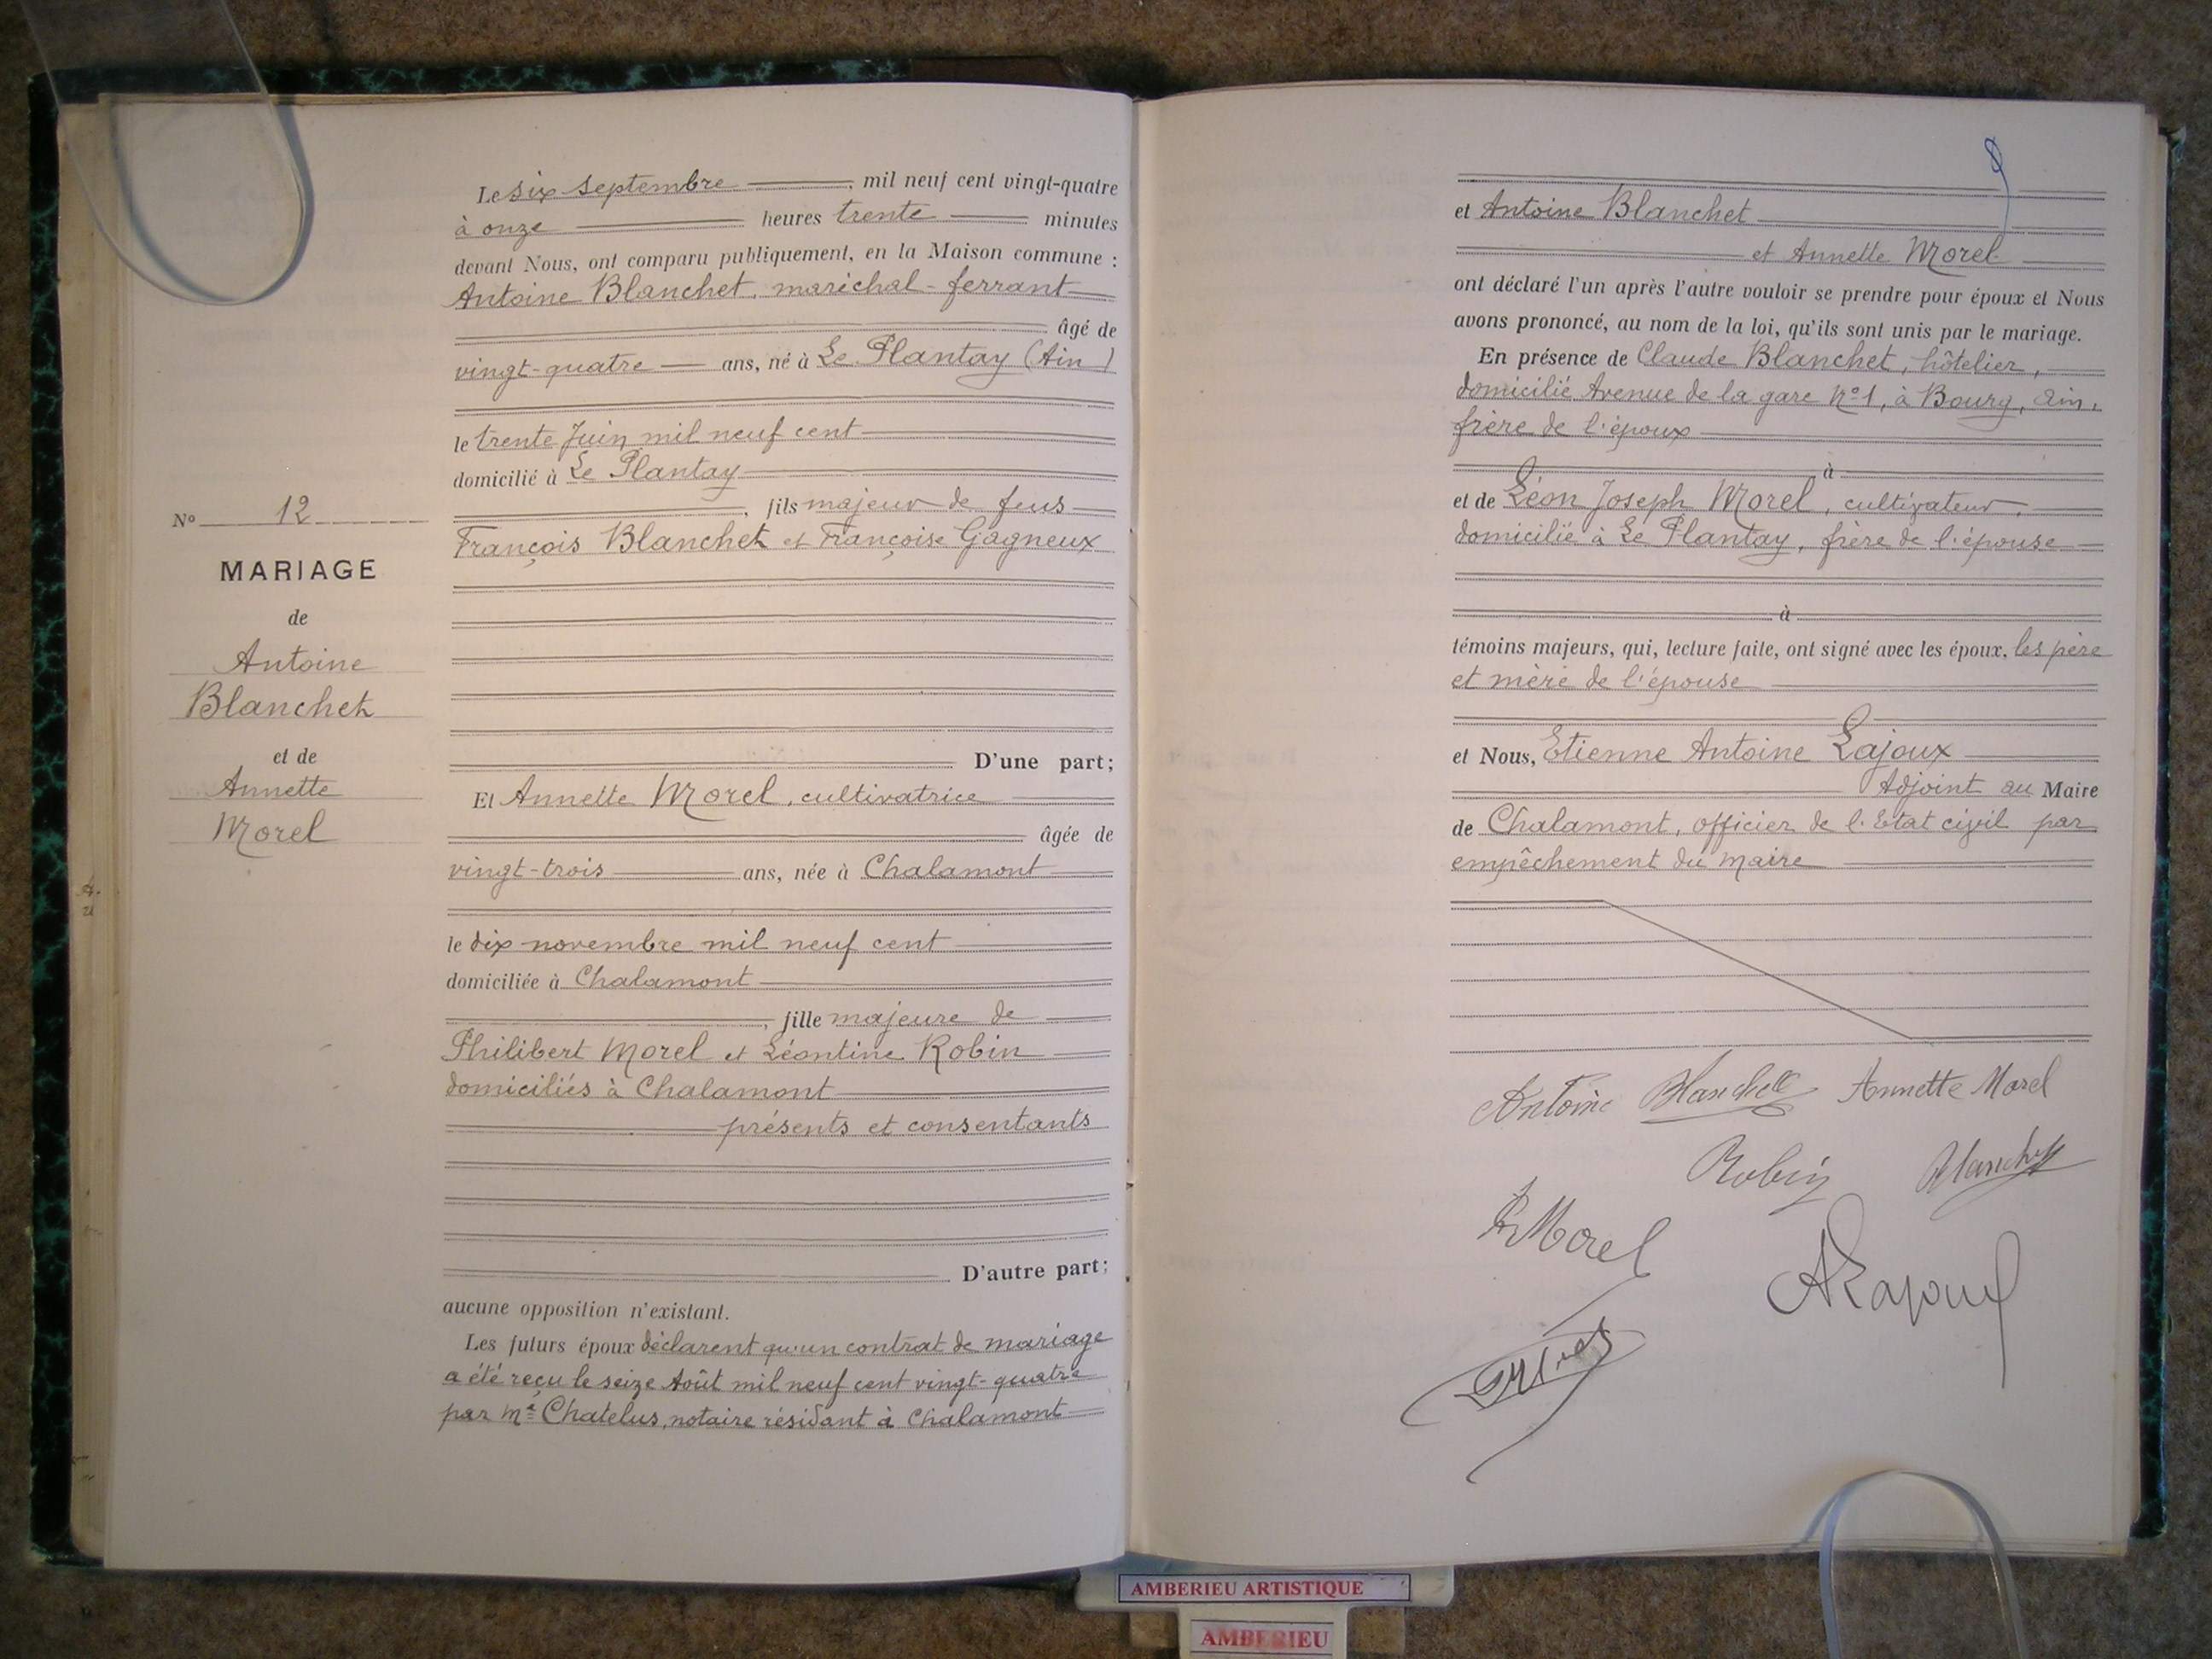 N° 12
MARIAGE
de
Antoine
Blanchet
et de
Annette
Morel
Le six Septembre, mil neuf cent vingt-quatre
à onze heures trente minutes
devant Nous, ont comparu publiquement, en la Maison commune :
Antoine Blanchet, maréchal-ferrant
âgé de
vingt-quatre ans, né à Le Plantay (Ain)
le trente Juin mil neuf cent
domicilié à Le Plantay
, fils majeur de feus
François Blanchet et Françoise Gagneux
D'une part;
Et Annette Morel, cultivatrice
âgée de
vingt-trois ans, née à Chalamont
le dix novembre mil neuf cent
domiciliée à Chalamont
, fille majeure de
Philibert Morel et Léontine Robin
domiciliés à Chalamont
présents et consentants
D'autre part;
aucune opposition n'existant.
Les futurs époux déclarent qu'un contrat de mariage
a été reçu le seize Août mil neuf cent vingt-quatre
par Me Chatelus, notaire résidant à Chalamont
et Antoine Blanchet
et Annette Morel
ont déclaré l'un après l'autre vouloir se prendre pour époux et Nous
avons prononcé, au nom de la loi, qu'ils sont unis par le mariage.
En présence de Claude Blanchet, hôtelier,
domicilié Avenue de la gare N°1, à Bourg, Ain,
frère de l'époux
à
et de Léon Joseph Morel, cultivateur,
domicilié à Le Plantay, frère de l'épouse
à
témoins majeurs, qui, lecture faite, ont signé avec les époux, les père
et mère de l'épouse
et Nous, Etienne Antoine Lajoux
Adjoint au Maire
de Chalamont, officier de l'Etat civil par
empêchement du Maire
Antoine Blanchet Annette Morel
Robin Blanchet
Morel
ALajoux
AMBERIEU ARTISTIQUE
AMBERIEU